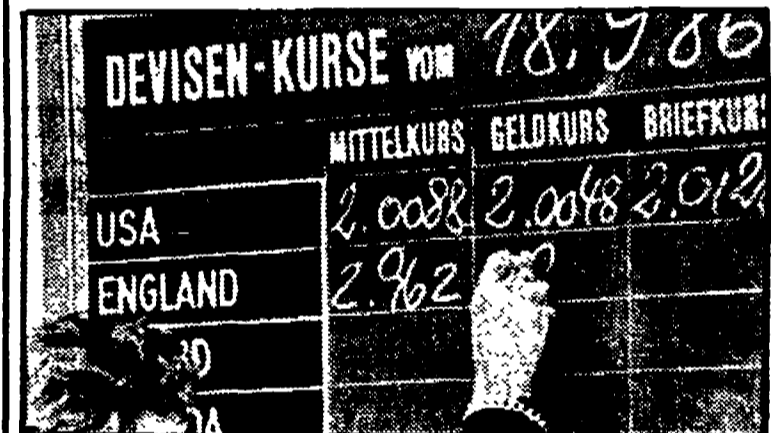 DEVISEN-KURSE VOM 18.9.86
MITTELKURS GELDKURS BRIEFKURS
USA 2.0088 2.0048 2.012
ENGLAND 2.962